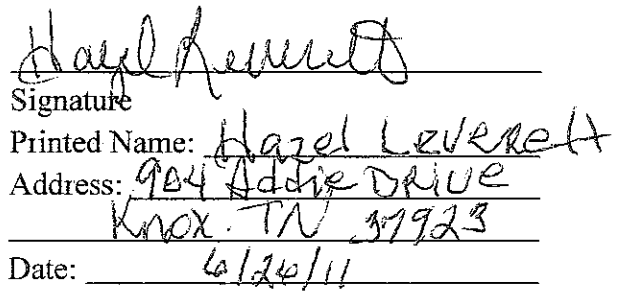 Hazel Leverett
Signature
Printed Name: Hazel Leverett
Address: 904 Addie Drive
Knox. TN 37923
Date: 6/26/11